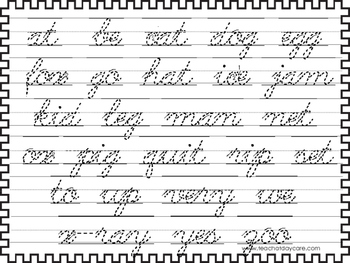 at be cat dog egg
fox go hat ice jam
kid leg man net
on pig quit rip set
to up very we
x-ray yes zoo
www.teachatdaycare.com